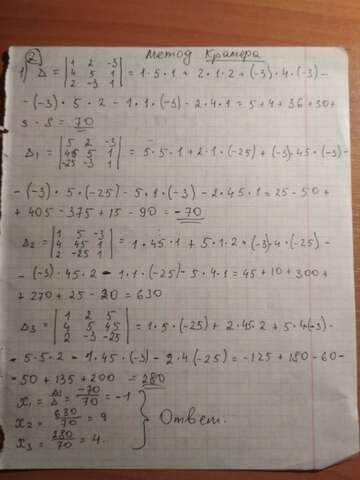 ② Метод Крамера
1) Δ = |1 2 -3; 4 5 1; 2 -3 1| = 1·5·1 + 2·1·2 + (-3)·4·(-3) -
- (-3)·5·2 - 1·1·(-3) - 2·4·1 = 5+4+36+30+
3 - 8 = 70
Δ₁ = |5 2 -3; 45 5 1; -25 -3 1| = 5·5·1 + 2·1·(-25) + (-3)·45·(-3) -
- (-3)·5·(-25) - 5·1·(-3) - 2·45·1 = 25 - 50 +
+ 405 - 375 + 15 - 90 = -70
Δ₂ = |1 5 -3; 4 45 1; 2 -25 1| = 1·45·1 + 5·1·2 + (-3)·4·(-25) -
- (-3)·45·2 - 1·1·(-25) - 5·4·1 = 45 + 10 + 300 +
+ 270 + 25 - 20 = 630
Δ₃ = |1 2 5; 4 5 45; 2 -3 -25| = 1·5·(-25) + 2·45·2 + 5·4(-3) -
- 5·5·2 - 1·45·(-3) - 2·4(-25) = -125 + 180 - 60 -
- 50 + 135 + 200 = 280
x₁ = Δ₁/Δ = -70/70 = -1
x₂ = 630/70 = 9 Ответ:
x₃ = 280/70 = 4